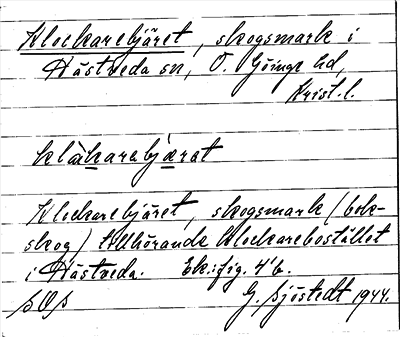 Klockarebjäret, skogsmark i
Hästveda sn, Ö. Göinge hd,
Krist. l.
klàkarebjærat
Klockarebjäret, skogsmark (bok-
skog) tillhörande Klockarebostället
i Hästveda. Ek: fig. 4'6.
G. Sjöstedt 1944.